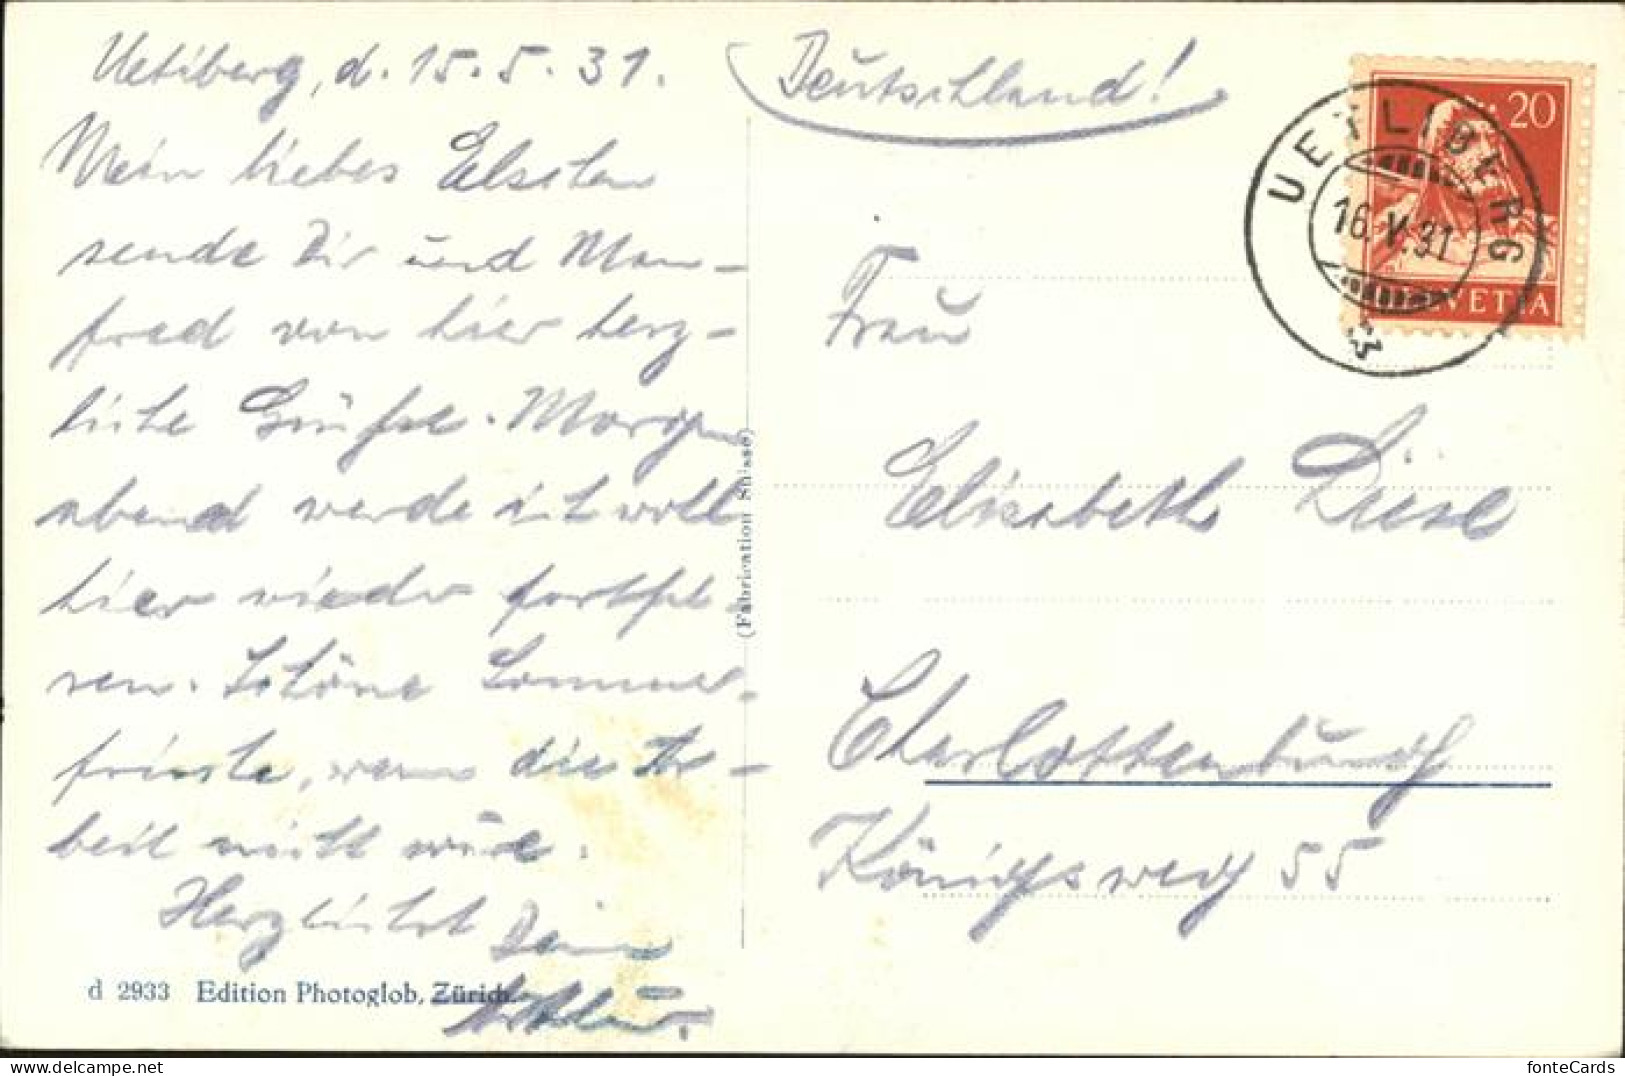 Uetliberg, d. 15. 5. 31.
Mein liebes Elschen
sende Dir und Man-
fred von hier herz-
liche Grüße. Morgen
abend werde ich wohl
hier wieder fortfah-
ren. Schöne Sommer-
frische, wenn die Ar-
beit nicht wäre.
Herzlichst Dein
Arthur.
d 2933 Edition Photoglob, Zürich.
(Fabrication Suisse)
Deutschland!
20
HELVETIA
UETLIBERG
16.V.31
Frau
Elisabeth
Charlottenburg
Königsweg 55
fonteCards